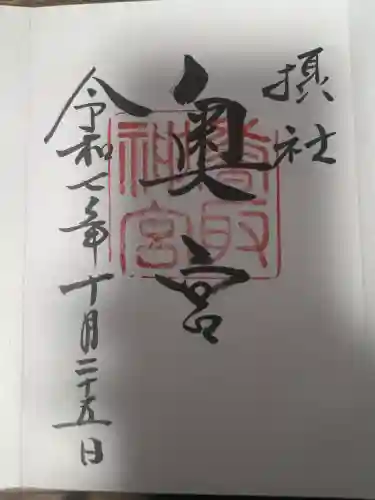 摂社
奥宮
香取
神宮
令和七年十月二十五日